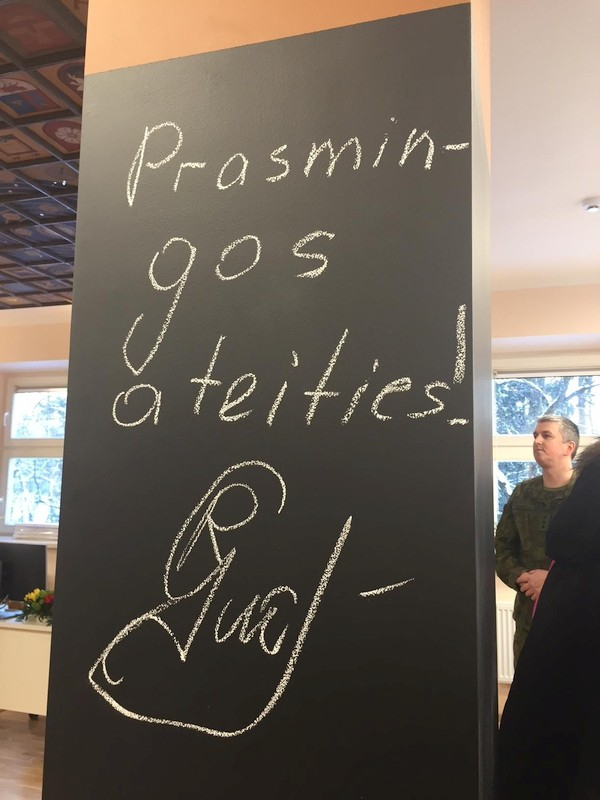 Prasmin-
gos
ateities!